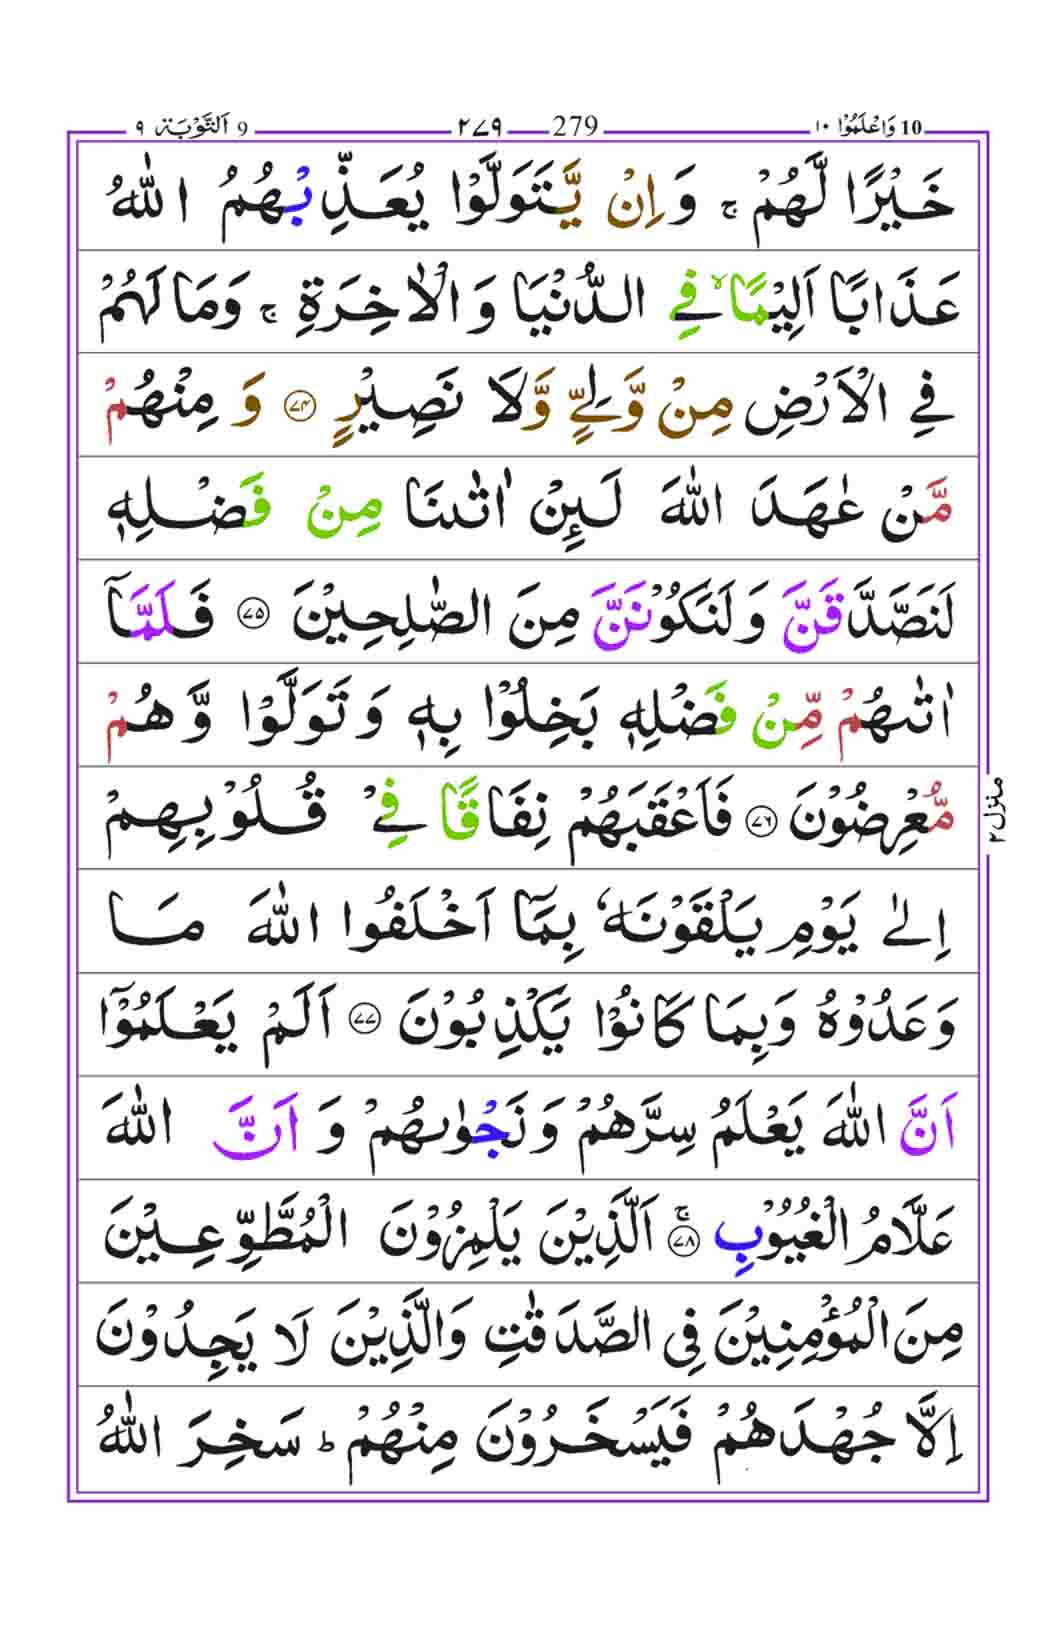 10 وَاعْلَمُوْا ١٠ 279 ٢٧٩ 9 اَلتَّوْبَة ٩
خَيْرًا لَّهُمْ ۚ وَاِنْ يَّتَوَلَّوْا يُعَذِّبْهُمُ اللّٰهُ
عَذَابًا اَلِيْمًا ۙ فِي الدُّنْيَا وَالْاٰخِرَةِ ۚ وَمَا لَهُمْ
فِي الْاَرْضِ مِنْ وَّلِيٍّ وَّلَا نَصِيْرٍ ﴿٧٤﴾ وَمِنْهُمْ
مَّنْ عٰهَدَ اللّٰهَ لَئِنْ اٰتٰىنَا مِنْ فَضْلِهٖ
لَنَصَّدَّقَنَّ وَلَنَكُوْنَنَّ مِنَ الصّٰلِحِيْنَ ﴿٧٥﴾ فَلَمَّآ
اٰتٰىهُمْ مِّنْ فَضْلِهٖ بَخِلُوْا بِهٖ وَتَوَلَّوْا وَّهُمْ
مُّعْرِضُوْنَ ﴿٧٦﴾ فَاَعْقَبَهُمْ نِفَاقًا فِيْ قُلُوْبِهِمْ
اِلٰى يَوْمِ يَلْقَوْنَهٗ بِمَآ اَخْلَفُوا اللّٰهَ مَا
وَعَدُوْهُ وَبِمَا كَانُوْا يَكْذِبُوْنَ ﴿٧٧﴾ اَلَمْ يَعْلَمُوْٓا
اَنَّ اللّٰهَ يَعْلَمُ سِرَّهُمْ وَنَجْوٰىهُمْ وَاَنَّ اللّٰهَ
عَلَّامُ الْغُيُوْبِ ﴿٧٨﴾ ۚ اَلَّذِيْنَ يَلْمِزُوْنَ الْمُطَّوِّعِيْنَ
مِنَ الْمُؤْمِنِيْنَ فِى الصَّدَقٰتِ وَالَّذِيْنَ لَا يَجِدُوْنَ
اِلَّا جُهْدَهُمْ فَيَسْخَرُوْنَ مِنْهُمْ ؕ سَخِرَ اللّٰهُ
منزل ٢